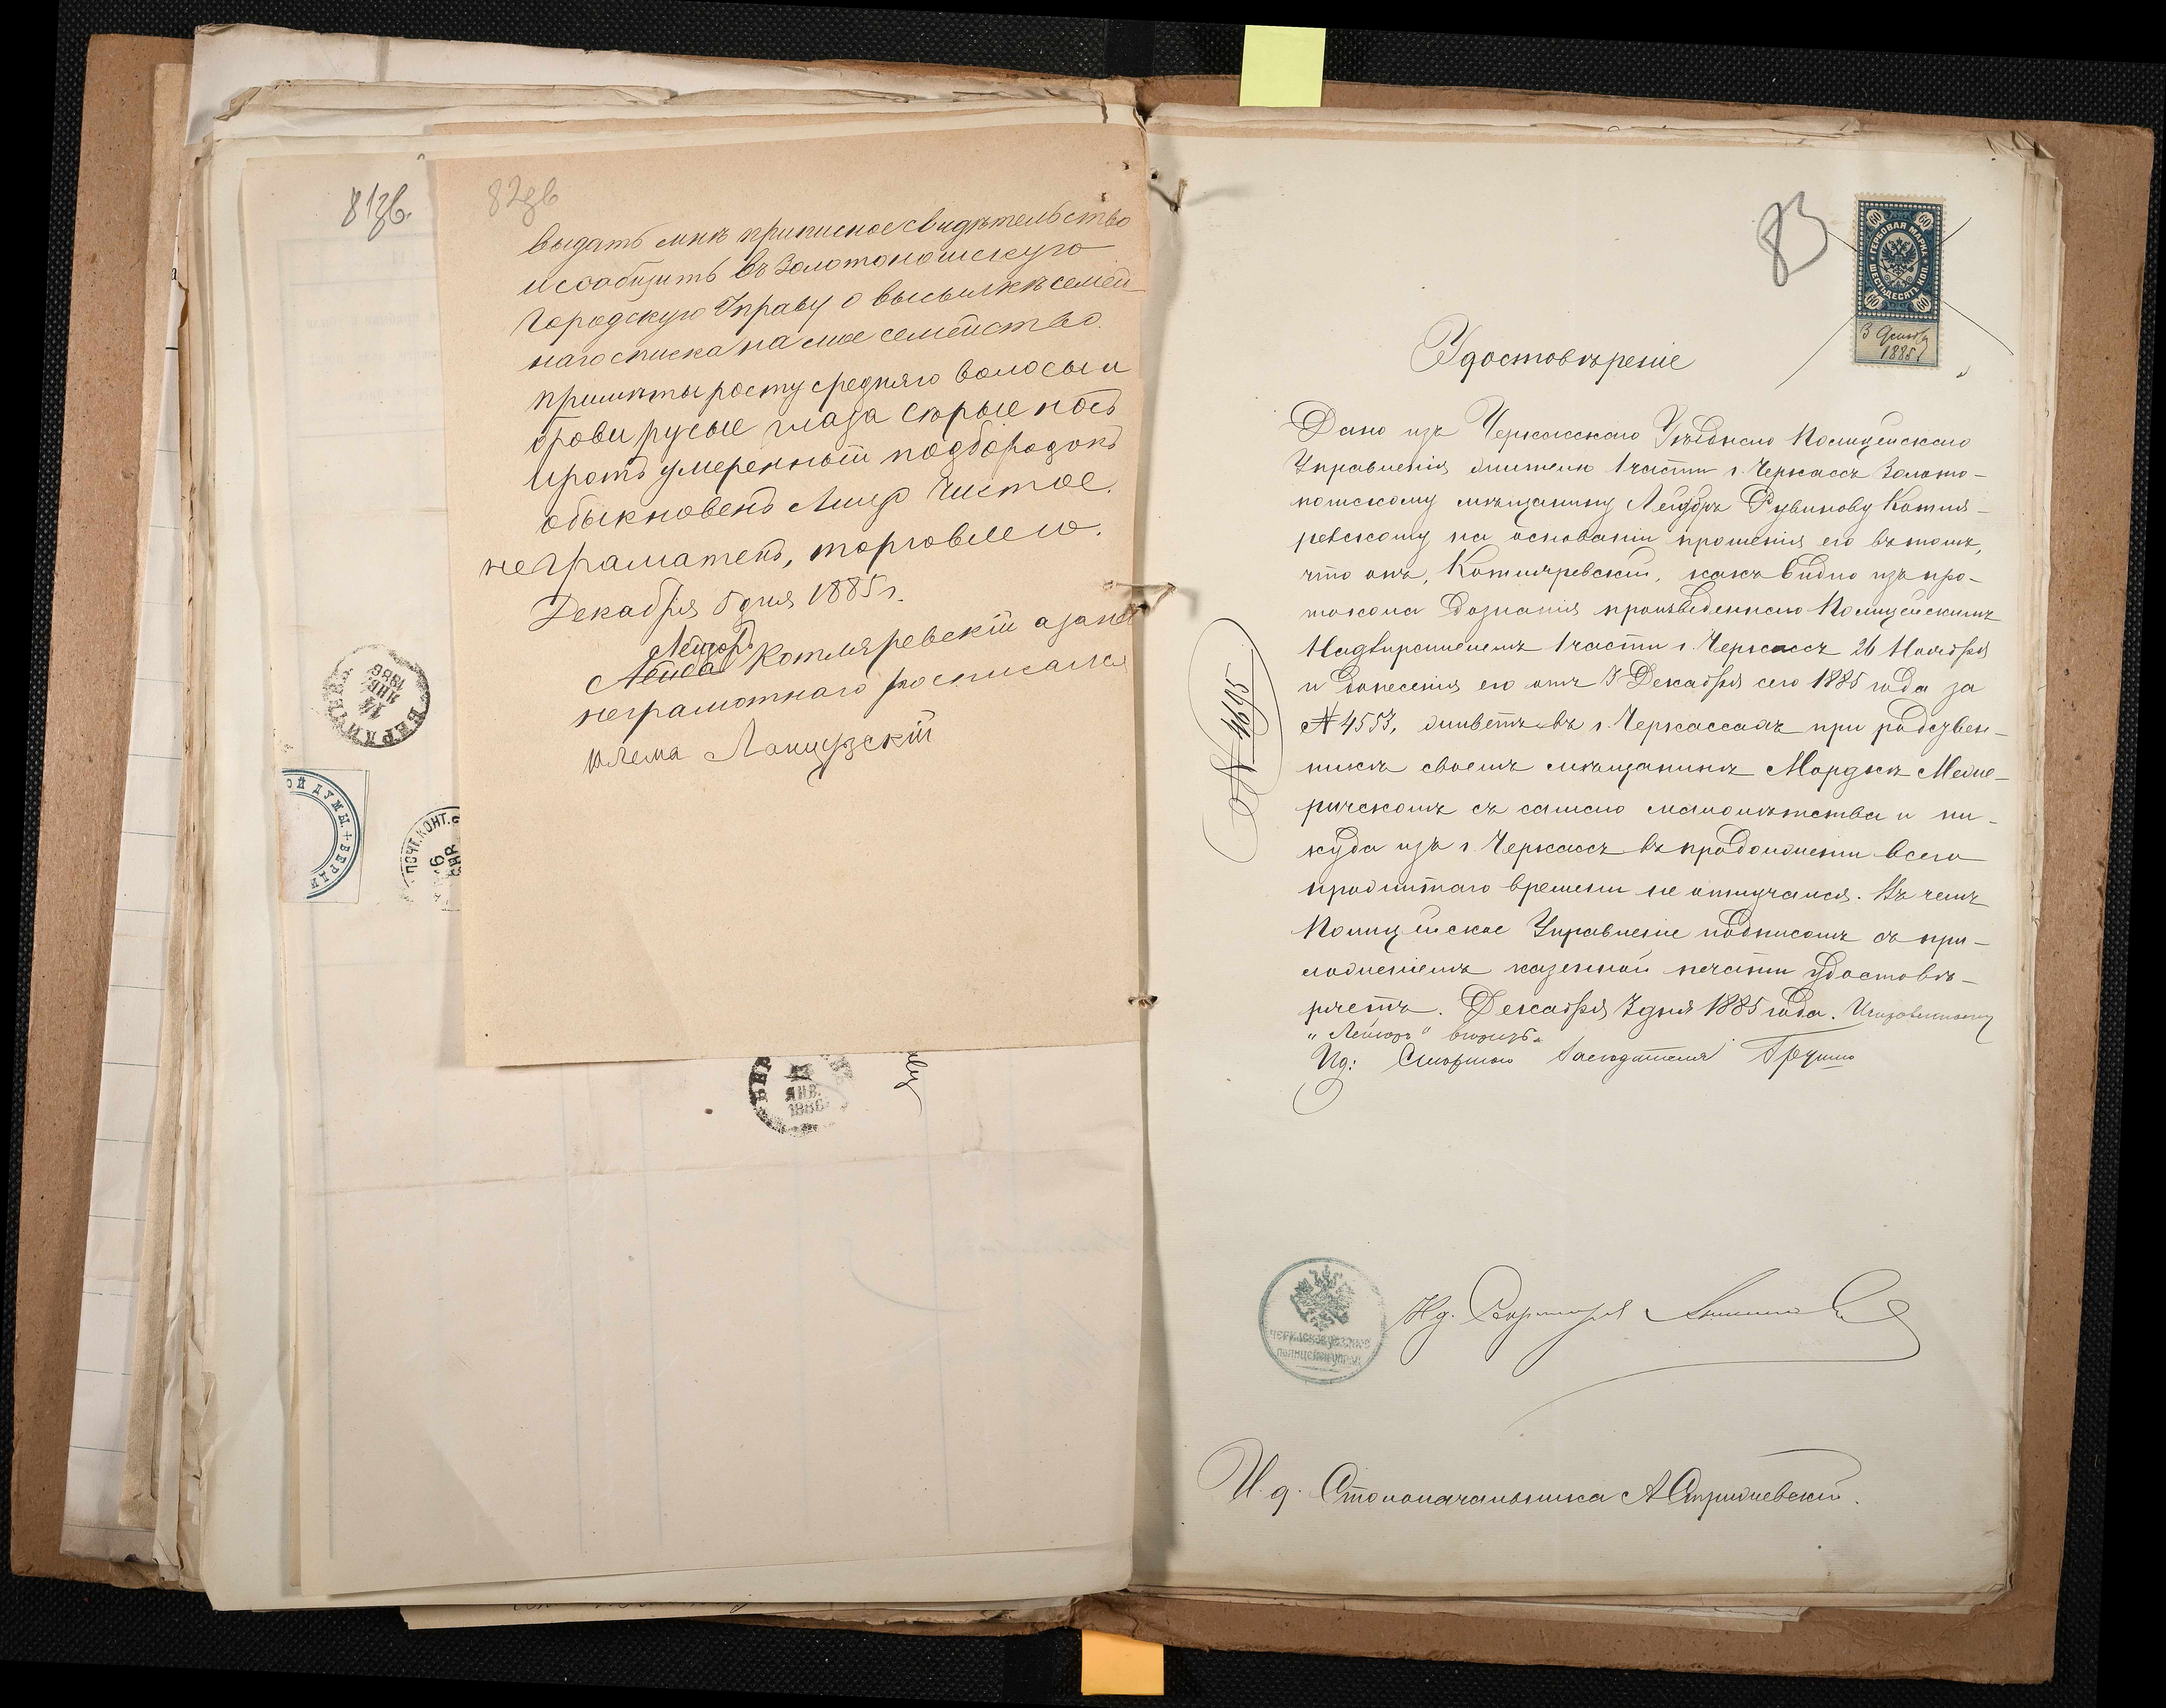 81зв.
82зв
выдать мнѣ приписное свидѣтельство
и сообщить въ Золотоношскую
Городскую Управу о высылкѣ семей-
наго списка на мое семейство.
примѣты росту средняго волосы и
брови русые глаза серые носъ
и ротъ умеренный подбородокъ
обыкновенъ Лицо чистое.
неграматенъ, торговлею.
Декабря 5 дня 1885 г.
Лейзоръ
Котляревскій а за него
неграмотнаго росписался
Ланцузскій
14
ЯНВ.
1886
ОЙ ДУМЫ. + БЕРДИ
ПОЧТ. КОНТ.
16
ЯНВ.
1886
83
ГЕРБОВАЯ МАРКА
ШЕСТЬДЕСЯТЪ КОП.
60 60
60 60
3 Декабр
1885
Удостовѣреніе
Дано изъ Черкасскаго Уѣзднаго Полицейскаго
Управленія жителю 1 части г. Черкассъ Золото-
ношскому мѣщанину Лейзоръ Рувинову Котля-
ревскому на основаніи прошенія его въ томъ,
что онъ, Котляревскій, какъ видно изъ про-
токола дознанія произведеннаго Полицейскимъ
Надзирателемъ 1 части г. Черкассъ 26 Ноября
и донесенія его отъ 3 Декабря сего 1885 года за
№ 4553, живетъ въ г. Черкассахъ при родствен-
никѣ своемъ мѣщанинѣ Мордкѣ Меже-
ричскомъ съ самаго малолѣтства и ни-
куда изъ г. Черкассъ въ продолженіи всего
прожитаго времени не отлучался. Въ чемъ
Полицейское Управленіе подписомъ съ при-
ложеніемъ казенной печати удостовѣ-
ряетъ. Декабря 7 дня 1885 года. Исправленному
„Лейзоръ" вѣрить.
Ид: Старшаго Засѣдателя
№ 4695
ЧЕРКАСКОЕ УѢЗДНОЕ
ПОЛИЦЕЙСК. УПРАВ.
И д. Секретаря
И. д. Столоначальника А Стрижевскій.